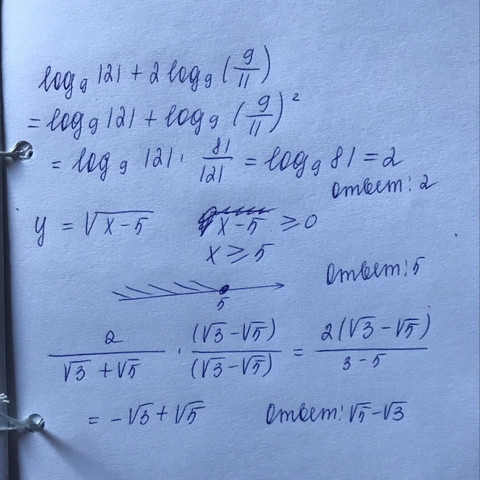 log₉ 121 + 2 log₉ (9/11)
= log₉ 121 + log₉ (9/11)²
= log₉ 121 · 81/121 = log₉ 81 = 2
Ответ: 2
y = √(x-5) x-5 ≥ 0
x ≥ 5
Ответ: 5
5
2/(√3 + √5) · (√3 - √5)/(√3 - √5) = 2(√3 - √5)/(3 - 5)
= -√3 + √5 Ответ: √5 - √3